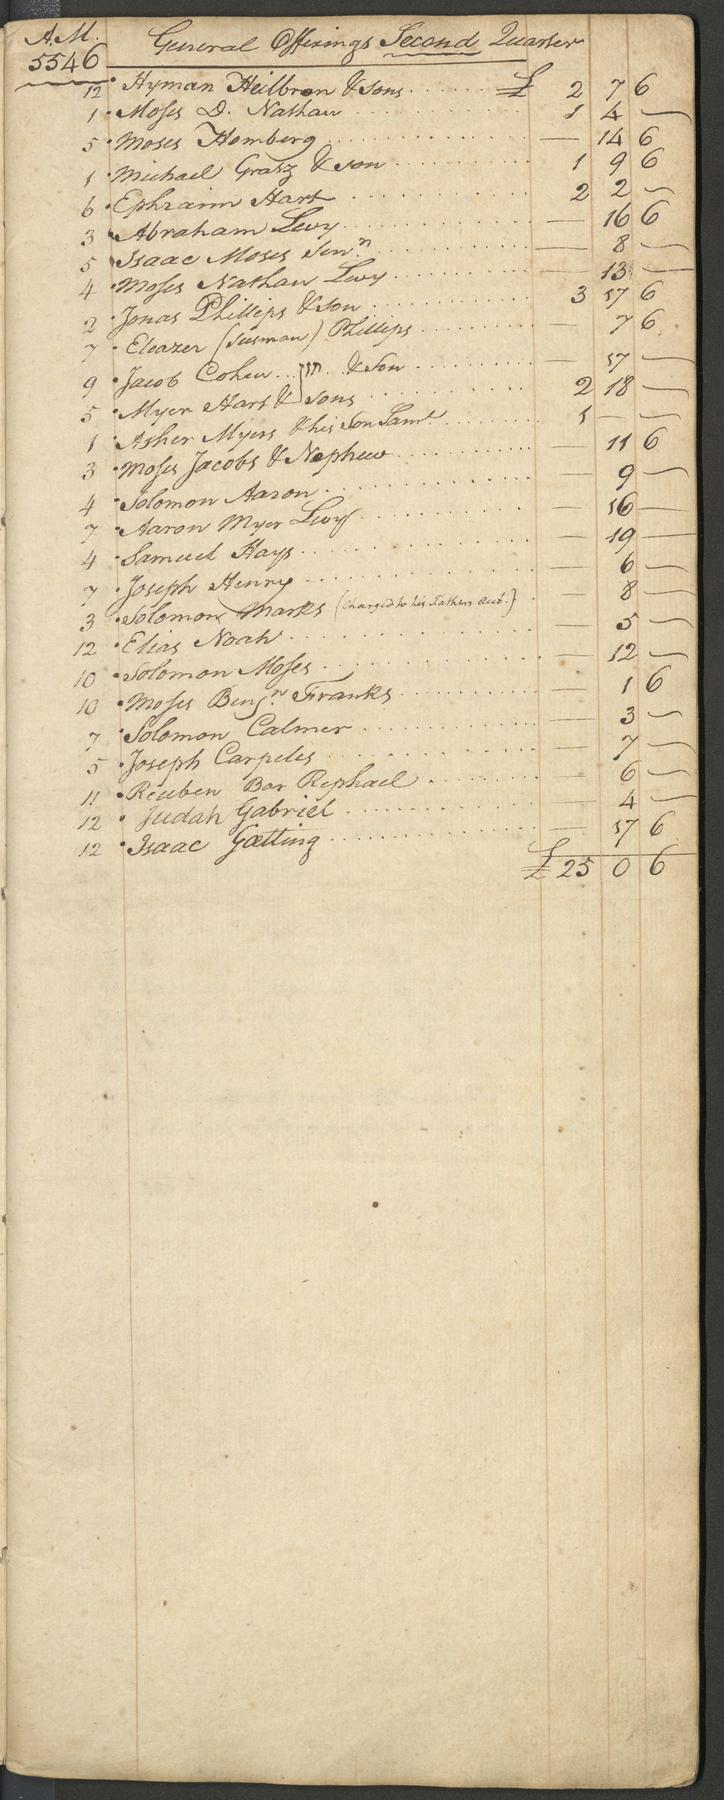 A.M. General Offerings Second Quarter
5546
12 Hyman Heilbron & Sons £ 2 7 6
1 Moses D. Nathan 1 4 —
5 Moses Homberg — 14 6
1 Michael Gratz & Son 1 9 6
6 Ephraim Hart 2 2 —
3 Abraham Levy — 16 6
5 Isaac Moses Sen.r — 8 —
4 Moses Nathan Levy — 13 —
2 Jonas Phillips & Son 3 17 6
7 Eleazer (Susman) Phillips — 7 6
9 Jacob Cohen & Son — 17 —
5 Myer Hart & Sons 2 18 —
1 Asher Myers & his Son Saml. 1 — —
3 Moses Jacobs & Nephew — 11 6
4 Solomon Aaron — 9 —
7 Aaron Myer Levy — 16 —
4 Samuel Hays — 19 —
7 Joseph Henry — 6 —
3 Solomon Marks (Charged to his Fathers Acct.) — 8 —
12 Elias Noah — 5 —
10 Solomon Moses — 12 —
10 Moses Benj.n Franks — 1 6
7 Solomon Calmer — 3 —
5 Joseph Carpeles — 7 —
11 Reuben Bar Rephael — 6 —
12 Judah Gabriel — 4 —
12 Isaac Gotting — 17 6
£ 25 0 6